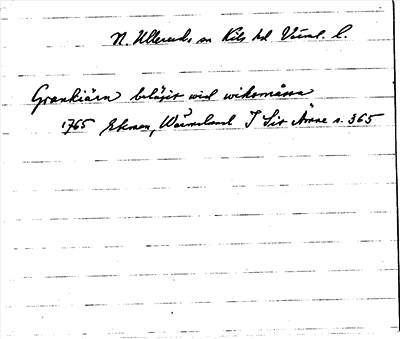 N. Ulleruds sn Kils hd Värml. l.
Grankiärn belägit wid wiksmåssa
1765 Ekman, Wärmland I Siv Årne s. 365